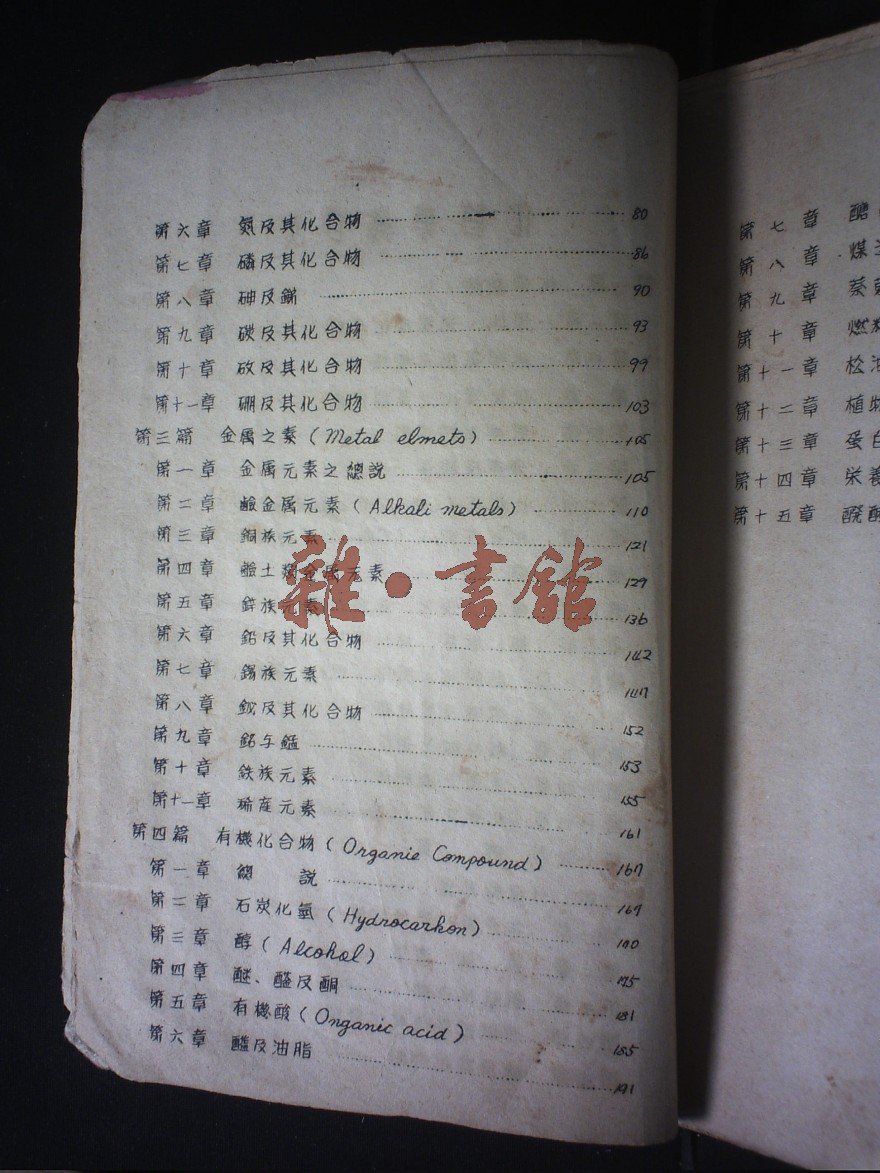 第六章 氮及其化合物 80
第七章 磷及其化合物 86
第八章 砷及銻 90
第九章 碳及其化合物 93
第十章 矽及其化合物 99
第十一章 硼及其化合物 103
第三篇 金属之素(Metal elmets) 105
第一章 金属元素之總説 105
第二章 鹼金属元素(Alkali metals) 110
第三章 銅族元素 121
第四章 鹼土類金属元素 129
第五章 鋅族元素 136
第六章 鋁及其化合物 142
第七章 錫族元素 147
第八章 鉍及其化合物 152
第九章 鉻与錳 153
第十章 鉄族元素 155
第十一章 稀産元素 161
第四篇 有機化合物(Organie Compound) 167
第一章 總説 167
第二章 石炭化氫(Hydrocarbon) 170
第三章 醇(Alcohol) 175
第四章 醚、醛及酮 181
第五章 有機酸(Organic acid) 185
第六章 及油脂 191
雜·書館
第七章 醣
第八章 煤
第九章
第十章 燃料
第十一章 松油
第十二章 植物
第十三章 蛋白
第十四章 栄養
第十五章 醗酵